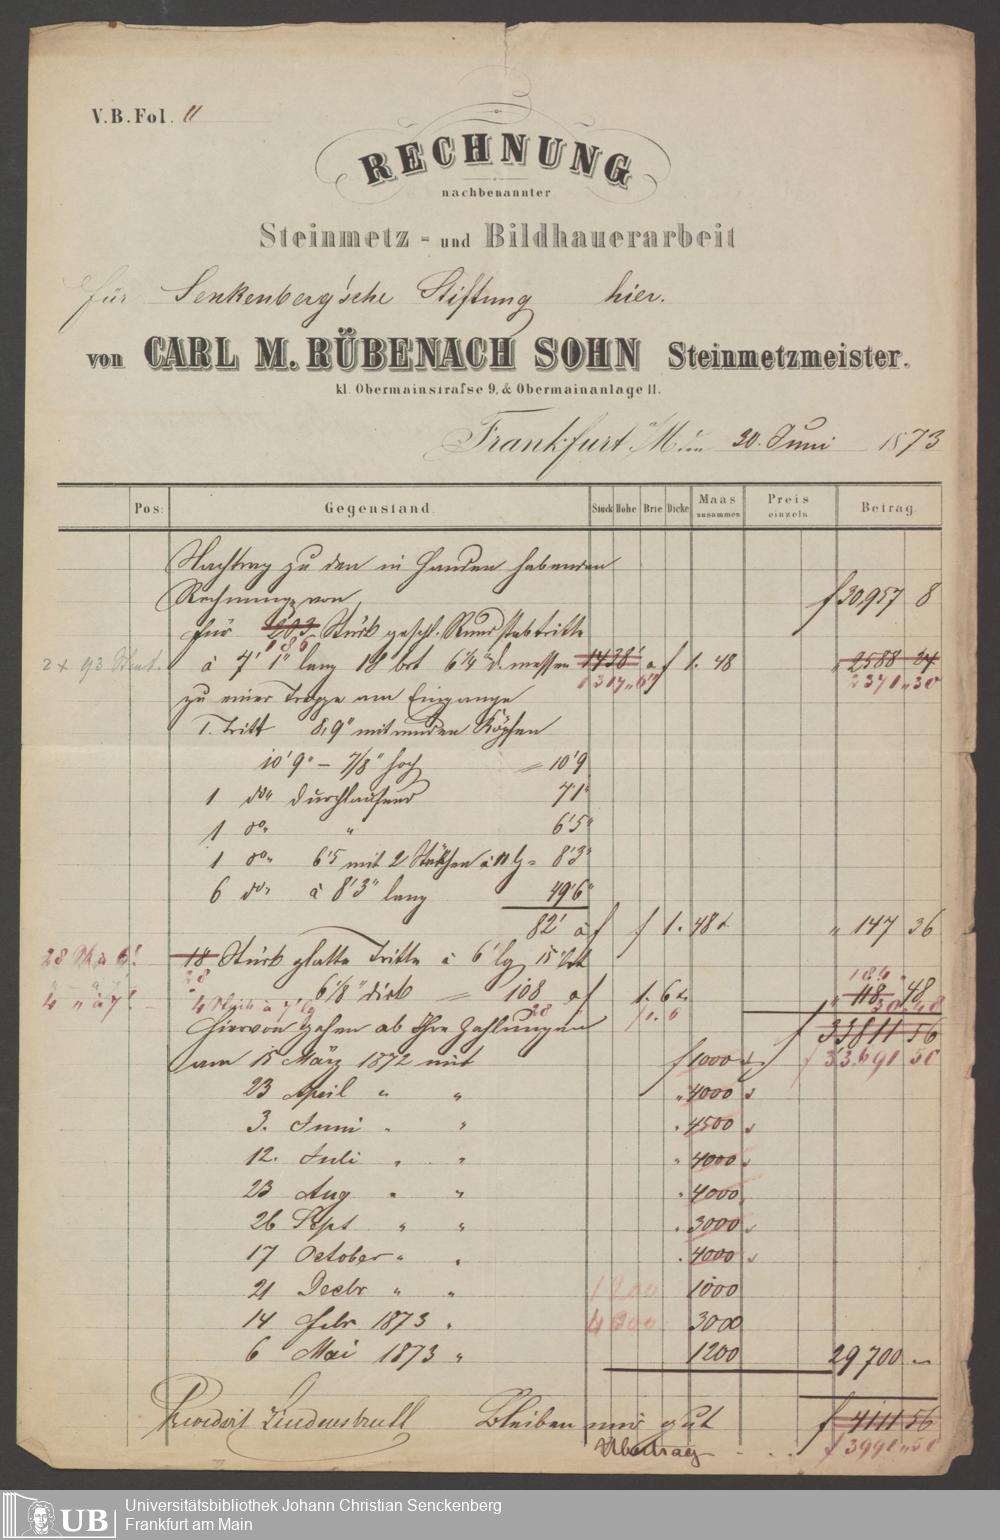 V.B.Fol. 11
RECHNUNG
nachbenannter
Steinmetz- und Bildhauerarbeit
für Senkenberg'sche Stiftung hier.
von CARL M. RÜBENACH SOHN Steinmetzmeister.
kl. Obermainstrafse 9, & Obermainanlage 11.
Frankfurt a/M. den 30. Juni 1873
Pos: Gegenstand. Stück Höhe Brte Dicke Maas zusammen Preis einzeln Betrag
Nachtrag zu den in Handen habenden
Rechnungen von f 30,957 8
für 203 Stück geschl. Rundstabtritte
186
2 x 93 Stück. à 7' 1" lang 18" brt 6 1/4" d. messen 1438' a f 1. 48 " 2588 24
1317" 6" 2371 " 30
zu einer Treppe am Eingange
1. Tritt 8,9" mit runden Köpfen
10' 9" – 7/8" hoch = 10' 9
1 do" durchlaufend 7' 1"
1 do" " 6' 5"
1 do" 6' 5 mit 2 Stükchen à 11 lg = 8' 3"
6 do" à 8' 3" lang 49' 6"
82' à f f 1. 48 x " 147 36
28 St à 6'. 18 Stück glatte Tritte à 6' lg 15" brt
28 184
4 " à 7'. 4 Stück à 7' lg 6 1/8" dick = 108 a f 1. 6 x " 118 48
28 f 1. 6 30 48
Hiervon gehen ab Ihre Zahlungen f 33811 56
am 15 März 1872 mit f 1000 f 33.691 50
23 April " " " 4000
3. Juni " " " 4500
12. Juli " " " 4000
23 Aug " " " 4000
26 Sept " " " 3000
17 October " " " 4000
21 Decbr " " 1200 1000
14 Febr. 1873 " 4000 3000
6 Mai 1873 " 1200 29700 –
Bleiben mir gut f 4111 56
Übertrag - . . f 3991 " 50
Universitätsbibliothek Johann Christian Senckenberg
UB Frankfurt am Main